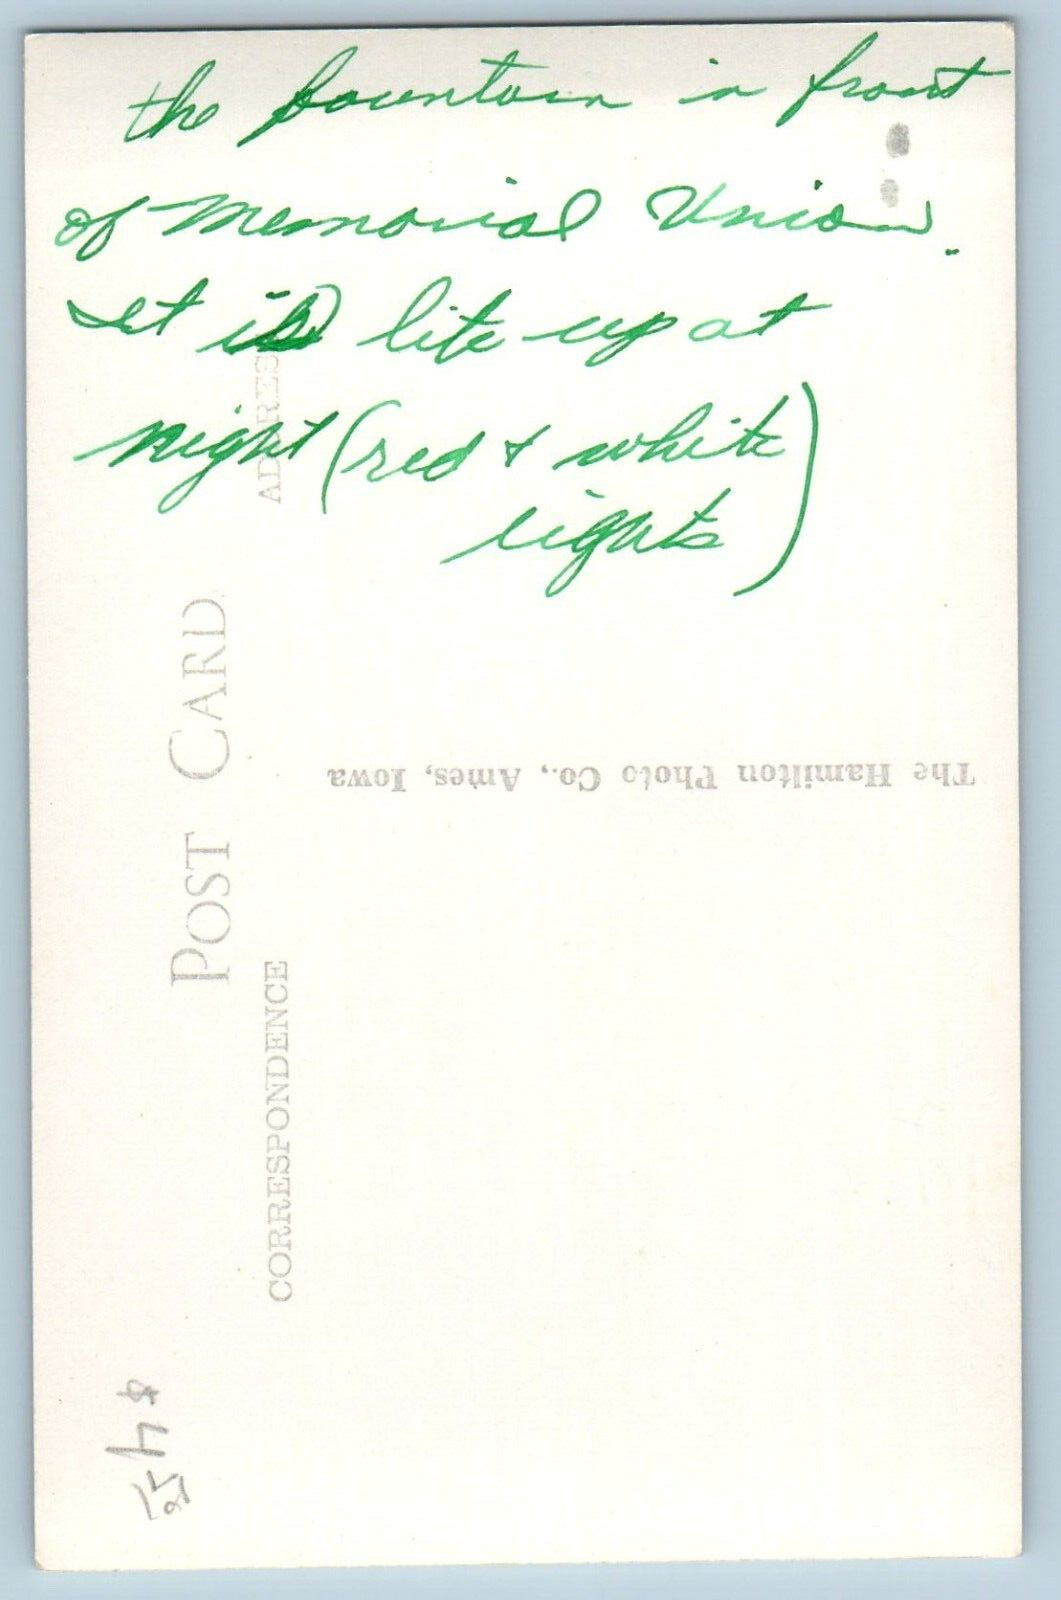 the fountain in front
of Memorial Union.
It is lite up at
night (red & white
lights)
ADDRESS
POST CARD
The Hamilton Photo Co., Ames, Iowa
CORRESPONDENCE